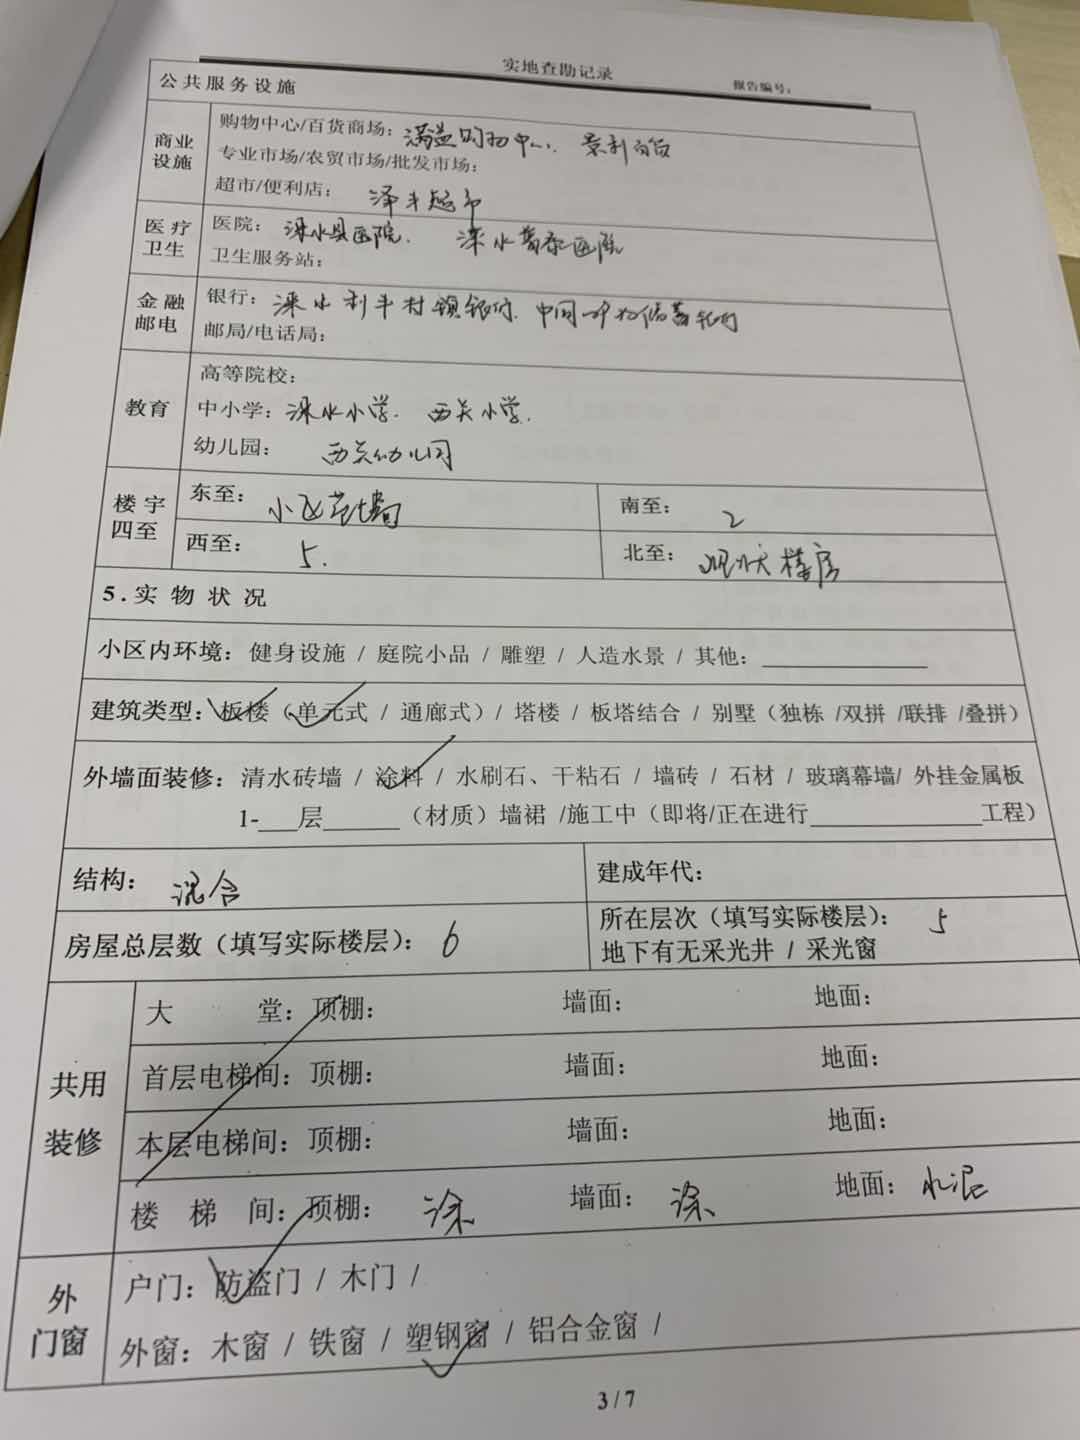 实地查勘记录
报告编号:
公共服务设施
商业设施
购物中心/百货商场: 涞益购物中心. 景利百货
专业市场/农贸市场/批发市场:
超市/便利店: 泽丰超市
医疗卫生
医院: 涞水县医院. 涞水 医院
卫生服务站:
金融邮电
银行: 涞水利丰村镇银行. 中国 储蓄银行
邮局/电话局:
教育
高等院校:
中小学: 涞水小学. 西关小学.
幼儿园: 西关幼儿园
楼宇四至
东至: 小区
南至: 2
西至: 5.
北至: 现状楼房
5.实物状况
小区内环境: 健身设施 / 庭院小品 / 雕塑 / 人造水景 / 其他: ______
建筑类型: 板楼（单元式 / 通廊式）/ 塔楼 / 板塔结合 / 别墅（独栋 /双拼 /联排 /叠拼）
外墙面装修: 清水砖墙 / 涂料 / 水刷石、干粘石 / 墙砖 / 石材 / 玻璃幕墙/ 外挂金属板
1-___层______（材质）墙裙 /施工中（即将/正在进行______工程）
结构: 混合
建成年代:
房屋总层数（填写实际楼层）: 6
所在层次（填写实际楼层）: 5
地下有无采光井 / 采光窗
共用装修
大堂: 顶棚: 墙面: 地面:
首层电梯间: 顶棚: 墙面: 地面:
本层电梯间: 顶棚: 墙面: 地面:
楼梯间: 顶棚: 涂 墙面: 涂 地面: 水泥
外门窗
户门: 防盗门 / 木门 /
外窗: 木窗 / 铁窗 / 塑钢窗 / 铝合金窗 /
3 / 7